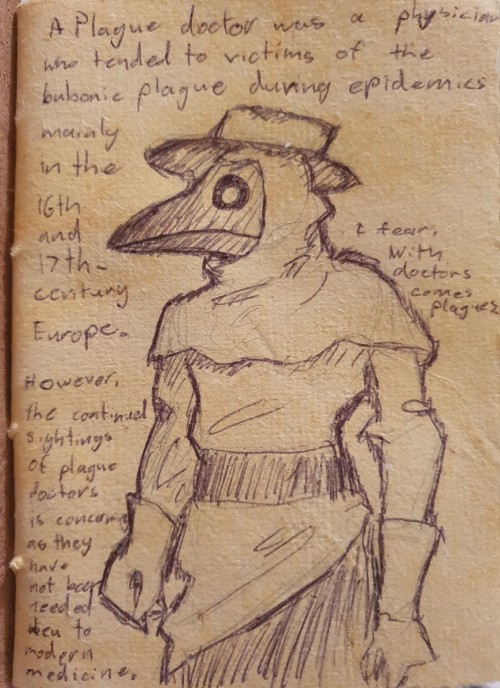 A Plague doctor was a physician
who tended to victims of the
bubonic plague during epidemics
mainly
in the
16th
and
17th-
century
Europe.
However,
the continued
sightings
of plague
doctors
is concerning
as they
have
not been
needed
due to
modern
medicine.
I fear,
With
doctors
comes
plagues